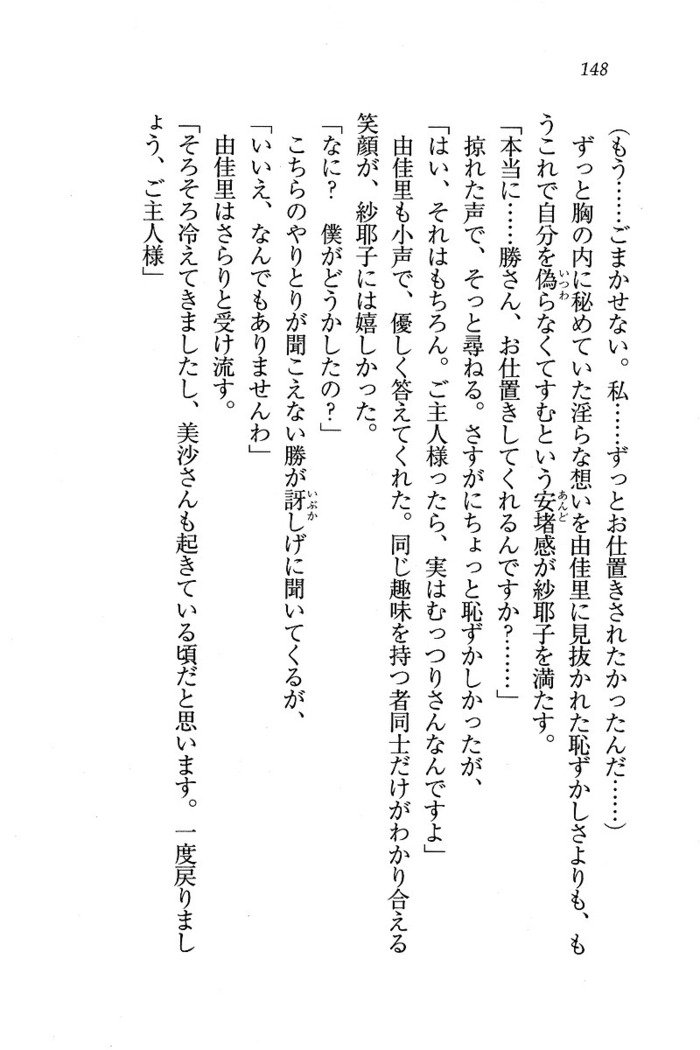 148
(もう……ごまかせない。私……ずっとお仕置きされたかったんだ……)
ずっと胸の内に秘めていた淫らな想いを由佳里に見抜かれた恥ずかしさよりも、も
うこれで自分を偽らなくてすむという安堵感が紗耶子を満たす。
「本当に……勝さん、お仕置きしてくれるんですか?……」
掠れた声で、そっと尋ねる。さすがにちょっと恥ずかしかったが、
「はい、それはもちろん。ご主人様ったら、実はむっつりさんなんですよ」
由佳里も小声で、優しく答えてくれた。同じ趣味を持つ者同士だけがわかり合える
笑顔が、紗耶子には嬉しかった。
「なに? 僕がどうかしたの?」
こちらのやりとりが聞こえない勝が訝しげに聞いてくるが、
「いいえ、なんでもありませんわ」
由佳里はさらりと受け流す。
「そろそろ冷えてきましたし、美沙さんも起きている頃だと思います。一度戻りまし
ょう、ご主人様」